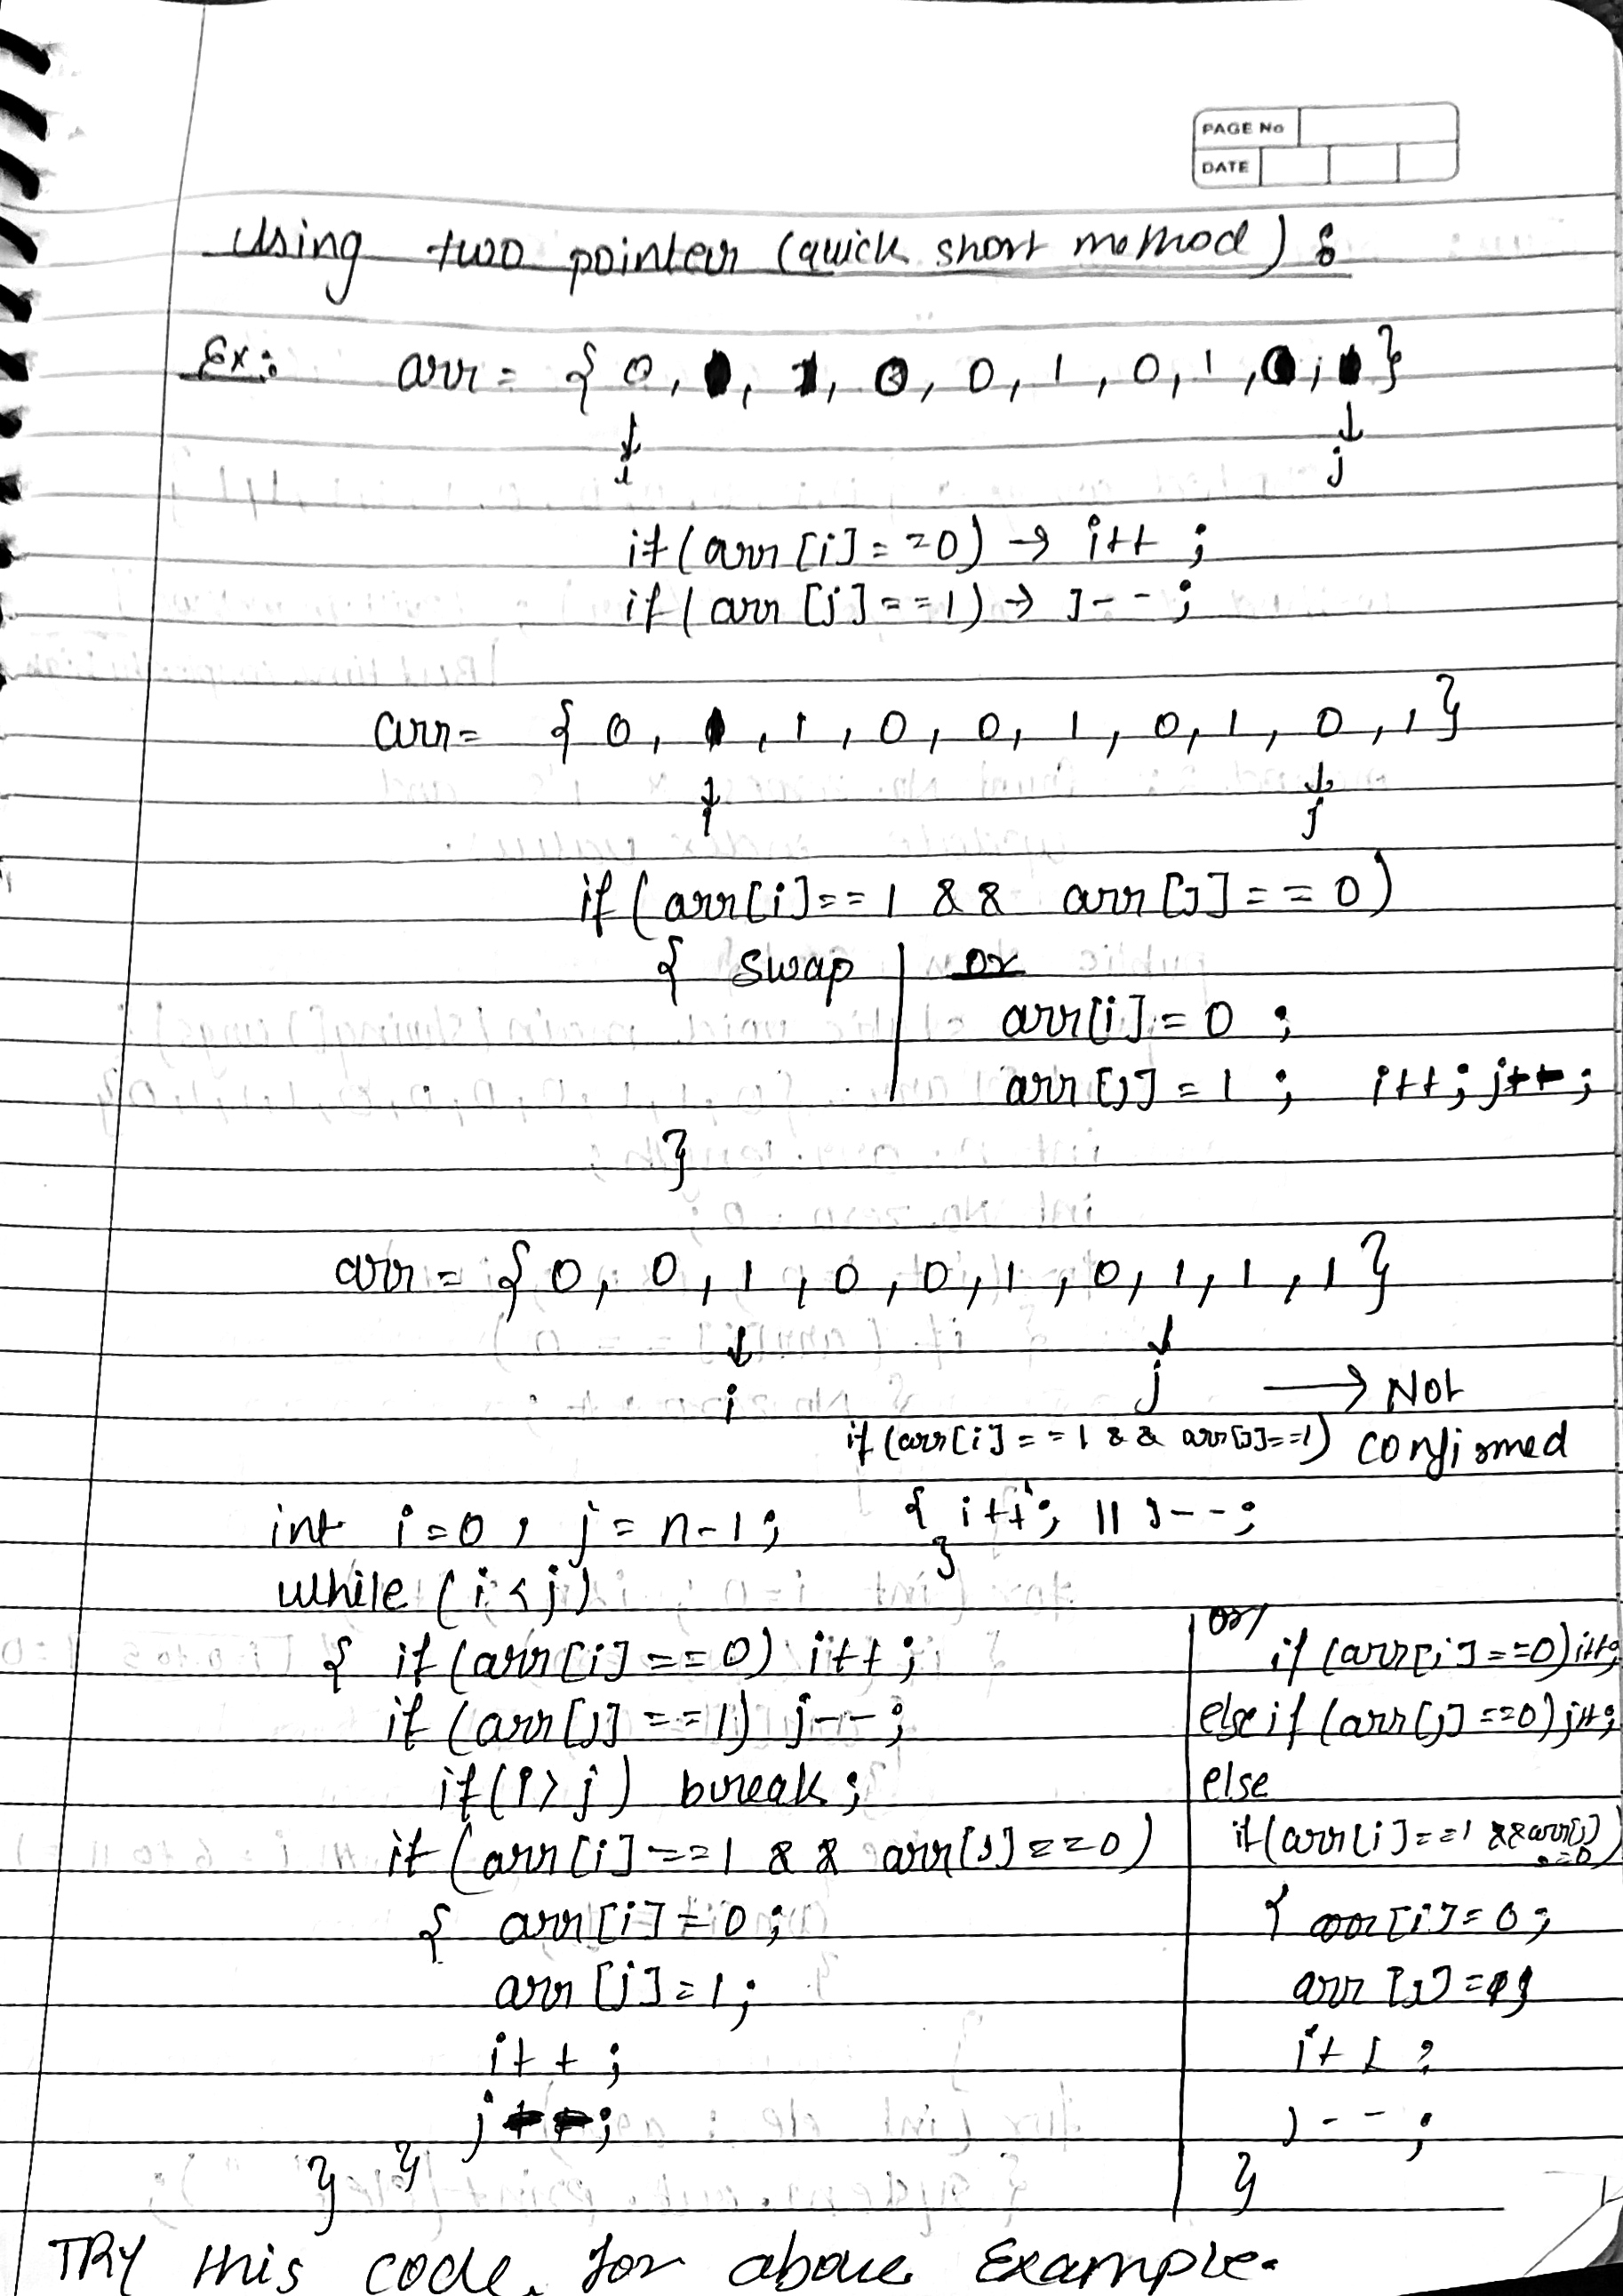 PAGE No
DATE
Using two pointer (quick short method) :
Ex: arr = { 0, 1, 1, 0, 0, 1, 0, 1, 0, 1 }
i j
if (arr [i] == 0) → i++ ;
if (arr [j] == 1) → j-- ;
arr = { 0, 1, 1, 0, 0, 1, 0, 1, 0, 1 }
i j
if (arr[i] == 1 && arr [j] == 0)
{ swap | or
arr[i] = 0 ;
arr [j] = 1 ; i++; j--;
}
arr = { 0, 0, 1, 0, 0, 1, 0, 1, 1, 1 }
i j → Not
if (arr[i] == 1 && arr[j]==1) confirmed
int i=0, j = n-1 ; { i++; || j-- ;
}
while (i < j)
{ if (arr[i] == 0) i++ ;
if (arr[j] == 1) j-- ;
if (i > j) break ;
if (arr[i] == 1 && arr[j] == 0)
{ arr[i] = 0 ;
arr [j] = 1 ;
i++ ;
j--;
} }
or/
if (arr[i] ==0) i++;
else if (arr[j] ==0) j++;
else
if (arr[i] ==1 && arr[j] ==0)
{ arr[i] = 0 ;
arr [j] = 1;
i++ ;
j-- ;
}
TRY this code for above Example.